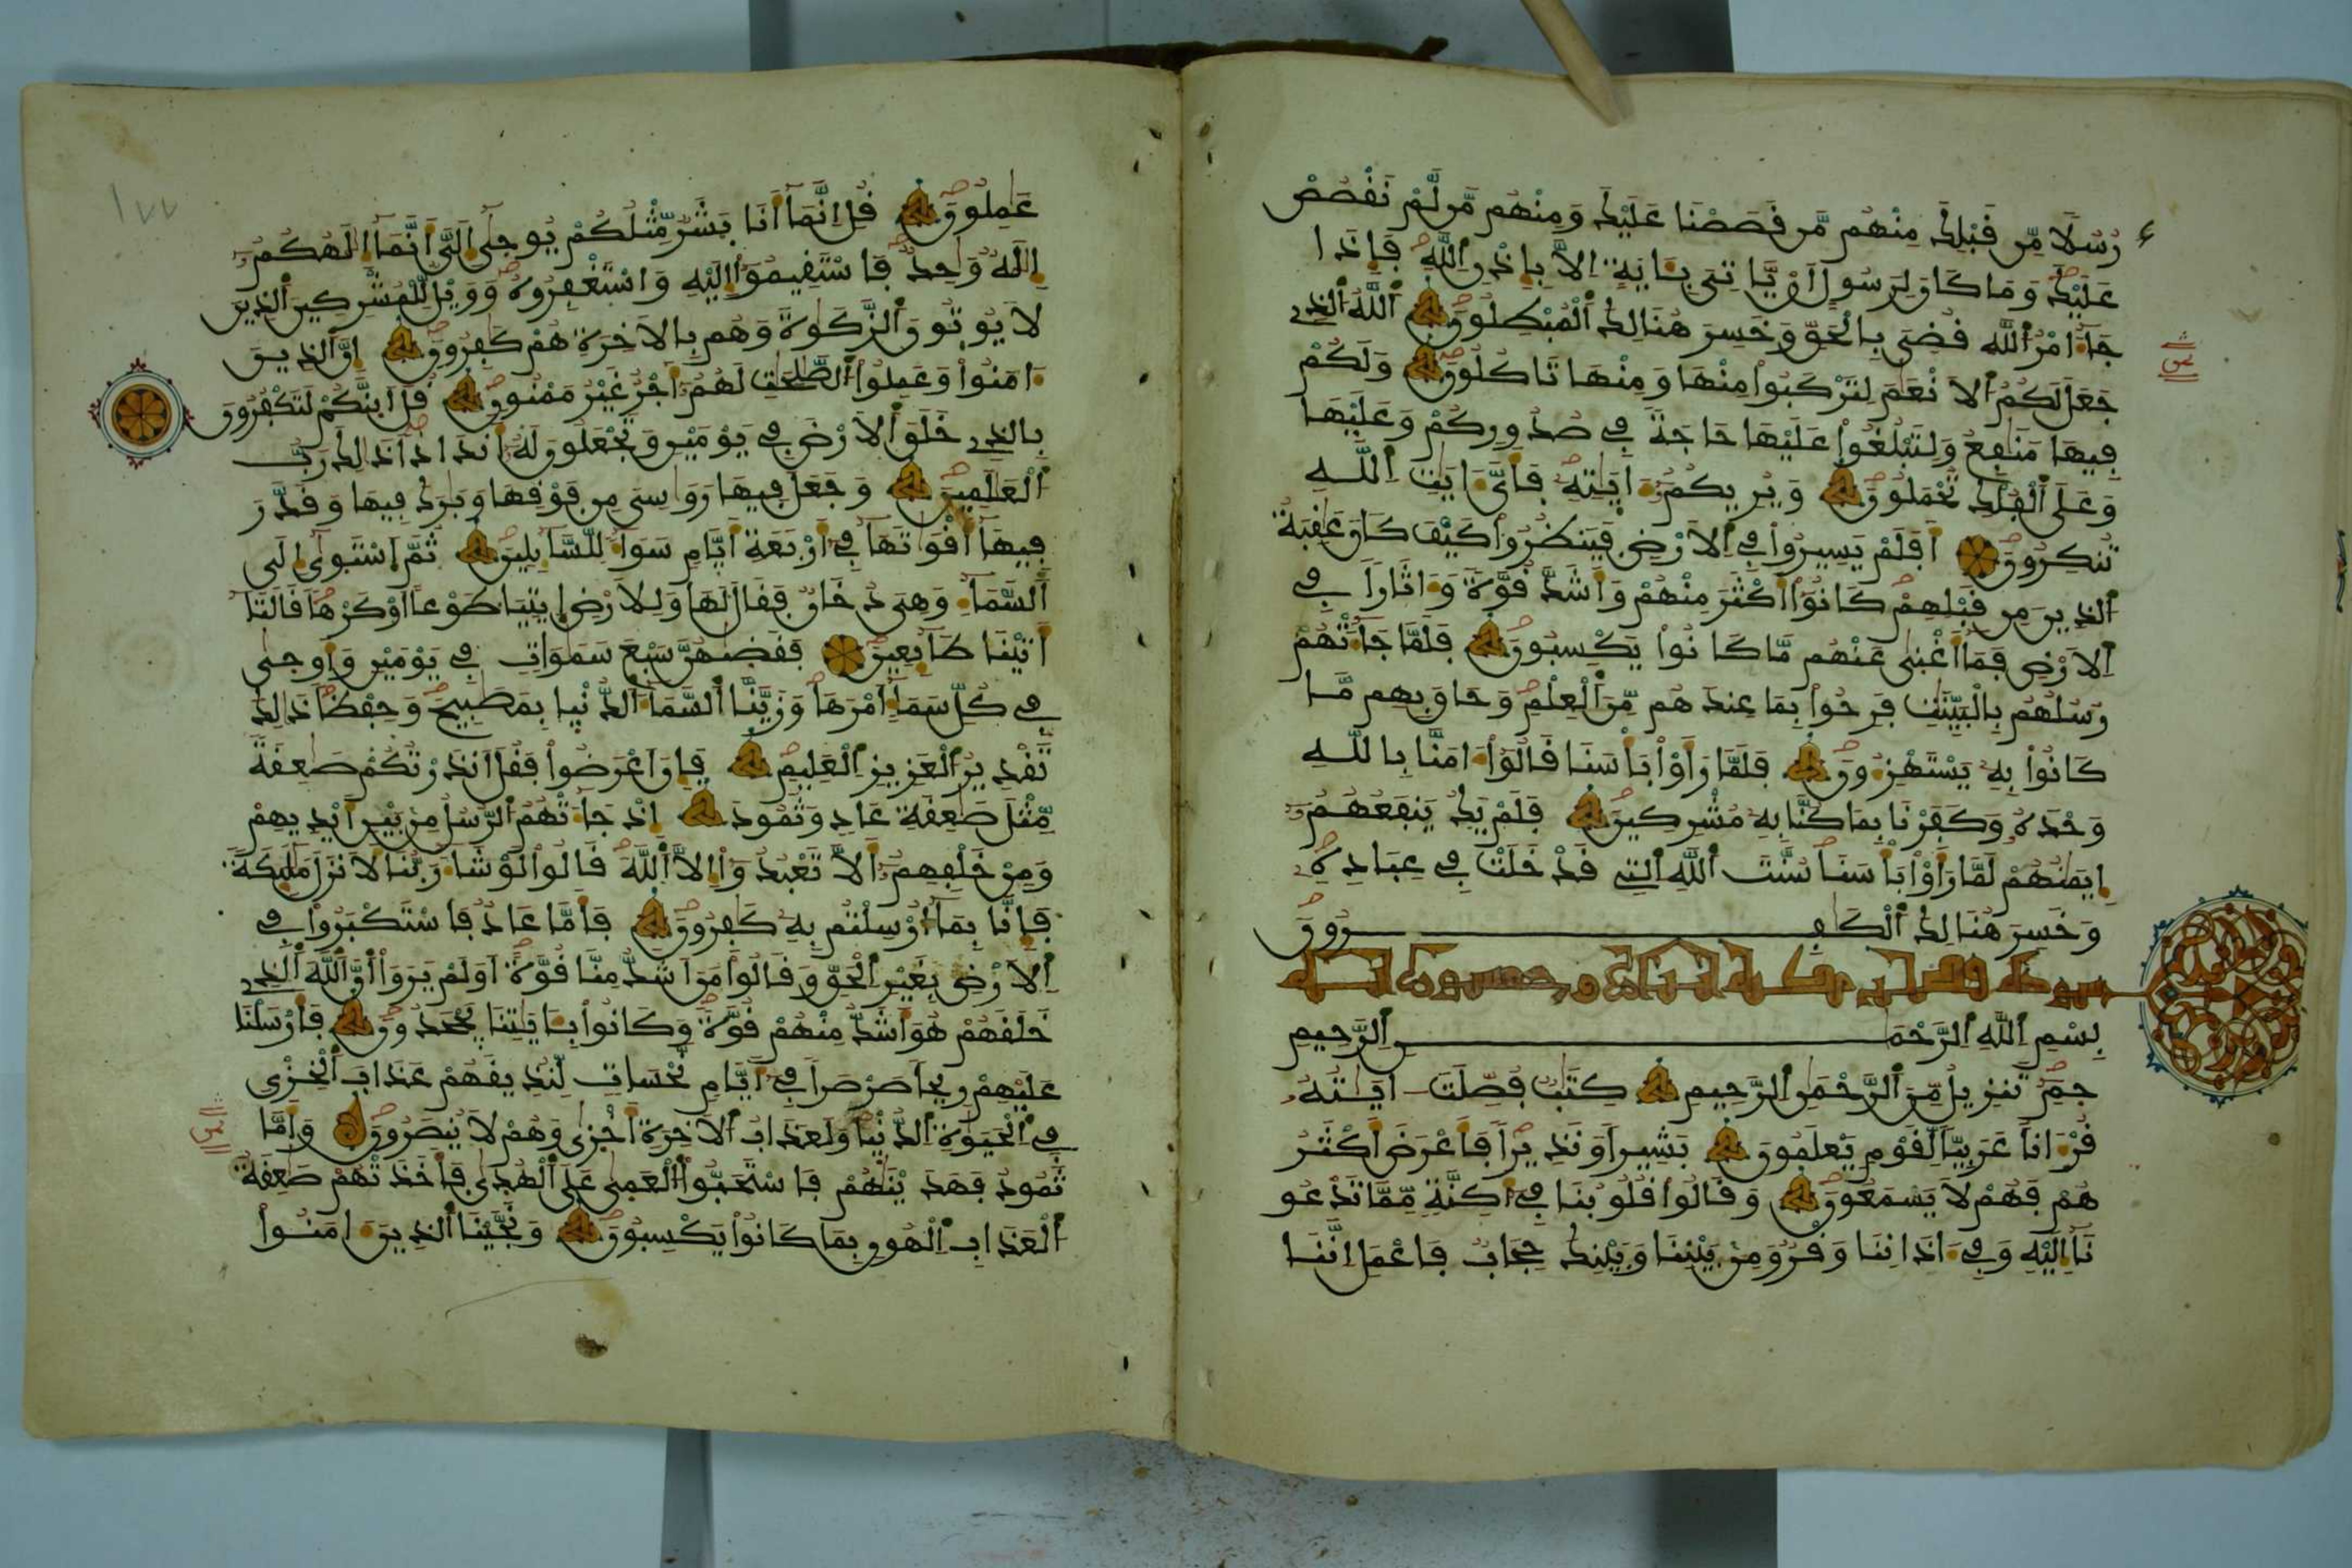 رُسُلًا مِّن قَبْلِكَ مِنْهُم مَّن قَصَصْنَا عَلَيْكَ وَمِنْهُم مَّن لَّمْ نَقْصُصْ
عَلَيْكَ وَمَا كَانَ لِرَسُولٍ اَنْ يَّاتِىَ بِـَٔايَةٍ اِلَّا بِإِذْنِ اِللَّهِ فَإِذَا
جَآءَ امْرُ اُللَّهِ قُضِىَ بِالْحَقِّ وَخَسِرَ هُنَالِكَ اَلْمُبْطِلُونَ اَللَّهُ اُلذِے
جَعَلَ لَكُمُ اُلَانْعَٰمَ لِتَرْكَبُواْ مِنْهَا وَمِنْهَا تَاكُلُونَ وَلَكُمْ
فِيهَا مَنَٰفِعُ وَلِتَبْلُغُواْ عَلَيْهَا حَاجَةً فِے صُدُورِكُمْ وَعَلَيْهَا
وَعَلَى اَلْفُلْكِ تُحْمَلُونَ وَيُرِيكُمُۥٓ ءَايَٰتِهِۦ فَأَىَّ ءَايَٰتِ اِللَّهِ
تُنكِرُونَ اَفَلَمْ يَسِيرُواْ فِے اِلَارْضِ فَيَنظُرُواْ كَيْفَ كَانَ عَٰقِبَةُ
اُلذِينَ مِن قَبْلِهِمْ كَانُوٓاْ أَكْثَرَ مِنْهُمْ وَأَشَدَّ قُوَّةً وَءَاثَاراً فِے
اِلَارْضِ فَمَآ أَغْنَىٰ عَنْهُم مَّا كَانُواْ يَكْسِبُونَ فَلَمَّا جَآءَتْهُمْ
رُسُلُهُم بِالْبَيِّنَٰتِ فَرِحُواْ بِمَا عِندَهُم مِّنَ اَلْعِلْمِ وَحَاقَ بِهِم مَّا
كَانُواْ بِهِۦ يَسْتَهْزِءُونَ فَلَمَّا رَأَوْاْ بَأْسَنَا قَالُوٓاْ ءَامَنَّا بِاللَّهِ
وَحْدَهُۥ وَكَفَرْنَا بِمَا كُنَّا بِهِۦ مُشْرِكِينَ فَلَمْ يَكُ يَنفَعُهُمُۥٓ
إِيمَٰنُهُمْ لَمَّا رَأَوْاْ بَأْسَنَا سُنَّتَ اَللَّهِ اِلتِے قَدْ خَلَتْ فِے عِبَادِهِۦ
وَخَسِرَ هُنَالِكَ اَلْكَٰفِرُونَ
سورة فصلت مكية اثنان وخمسون اية
بِسْمِ اِللَّهِ اِلرَّحْمَٰنِ اِلرَّحِيمِ
حمٓ تَنزِيلٌ مِّنَ اَلرَّحْمَٰنِ اِلرَّحِيمِ كِتَٰبٌ فُصِّلَتَ ايَٰتُهُۥ
قُرْءَاناً عَرَبِيّاً لِّقَوْمٍ يَعْلَمُونَ بَشِيراً وَنَذِيراً فَأَعْرَضَ أَكْثَرُ
هُمْ فَهُمْ لَا يَسْمَعُونَ وَقَالُواْ قُلُوبُنَا فِےٓ أَكِنَّةٍ مِّمَّا تَدْعُو
نَآ إِلَيْهِ وَفِےٓ ءَاذَانِنَا وَقْرٌ وَمِنۢ بَيْنِنَا وَبَيْنِكَ حِجَابٌ فَاعْمَلِ اِنَّنَا
عَٰمِلُونَ قُلِ اِنَّمَآ أَنَا بَشَرٌ مِّثْلُكُمْ يُوحَىٰٓ إِلَىَّ أَنَّمَآ إِلَٰهُكُمُۥٓ
إِلَٰهٌ وَٰحِدٌ فَاسْتَقِيمُوٓاْ إِلَيْهِ وَاسْتَغْفِرُوهُ وَوَيْلٌ لِّلْمُشْرِكِينَ اَلذِينَ
لَا يُوتُونَ اَلزَّكَوٰةَ وَهُم بِالَاخِرَةِ هُمْ كَٰفِرُونَ إِنَّ اَلذِينَ
ءَامَنُواْ وَعَمِلُواْ اُلصَّٰلِحَٰتِ لَهُمُۥٓ أَجْرٌ غَيْرُ مَمْنُونٍ قُلَ اَئِنَّكُمْ لَتَكْفُرُونَ
بِالذِے خَلَقَ اَلَارْضَ فِے يَوْمَيْنِ وَتَجْعَلُونَ لَهُۥٓ أَندَاداً ذَٰلِكَ رَبُّ
اُلْعَٰلَمِينَ وَجَعَلَ فِيهَا رَوَٰسِىَ مِن فَوْقِهَا وَبَٰرَكَ فِيهَا وَقَدَّرَ
فِيهَآ أَقْوَٰتَهَا فِےٓ أَرْبَعَةِ أَيَّامٍ سَوَآءً لِّلسَّآئِلِينَ ثُمَّ اَسْتَوَىٰٓ إِلَى
اَلسَّمَآءِ وَهِىَ دُخَانٌ فَقَالَ لَهَا وَلِلَارْضِ اِيتِيَا طَوْعاً اَوْ كَرْهاً قَالَتَآ
أَتَيْنَا طَآئِعِينَ فَقَضَىٰهُنَّ سَبْعَ سَمَٰوَاتٍ فِے يَوْمَيْنِ وَأَوْحَىٰ
فِے كُلِّ سَمَآءٍ اَمْرَهَا وَزَيَّنَّا اَلسَّمَآءَ اَلدُّنْيَا بِمَصَٰبِيحَ وَحِفْظاً ذَٰلِكَ
تَقْدِيرُ اُلْعَزِيزِ اِلْعَلِيمِ فَإِنَ اَعْرَضُواْ فَقُلَ اَنذَرْتُكُمْ صَٰعِقَةً
مِّثْلَ صَٰعِقَةِ عَادٍ وَثَمُودَ إِذْ جَآءَتْهُمُ اُلرُّسُلُ مِنۢ بَيْنِ أَيْدِيهِمْ
وَمِنْ خَلْفِهِمُۥٓ أَلَّا تَعْبُدُوٓاْ إِلَّا اَللَّهَ قَالُواْ لَوْ شَآءَ رَبُّنَا لَأَنزَلَ مَلَٰٓئِكَةً
فَإِنَّا بِمَآ أُرْسِلْتُم بِهِۦ كَٰفِرُونَ فَأَمَّا عَادٌ فَاسْتَكْبَرُواْ فِے
اِلَارْضِ بِغَيْرِ اِلْحَقِّ وَقَالُواْ مَنَ اَشَدُّ مِنَّا قُوَّةً اَوَلَمْ يَرَوَاْ اَنَّ اَللَّهَ اَلذِے
خَلَقَهُمْ هُوَ أَشَدُّ مِنْهُمْ قُوَّةً وَكَانُواْ بِـَٔايَٰتِنَا يَجْحَدُونَ فَأَرْسَلْنَا
عَلَيْهِمْ رِيحاً صَرْصَراً فِےٓ أَيَّامٍ نَّحْسَاتٍ لِّنُذِيقَهُمْ عَذَابَ اَلْخِزْىِ
فِے اِلْحَيَوٰةِ اِلدُّنْيَا وَلَعَذَابُ اُلَاخِرَةِ أَخْزَىٰ وَهُمْ لَا يُنصَرُونَ وَأَمَّا
ثَمُودُ فَهَدَيْنَٰهُمْ فَاسْتَحَبُّواْ اُلْعَمَىٰ عَلَى اَلْهُدَىٰ فَأَخَذَتْهُمْ صَٰعِقَةُ
اُلْعَذَابِ اِلْهُونِ بِمَا كَانُواْ يَكْسِبُونَ وَنَجَّيْنَا اَلذِينَ ءَامَنُواْ
ثمن
١٧٧